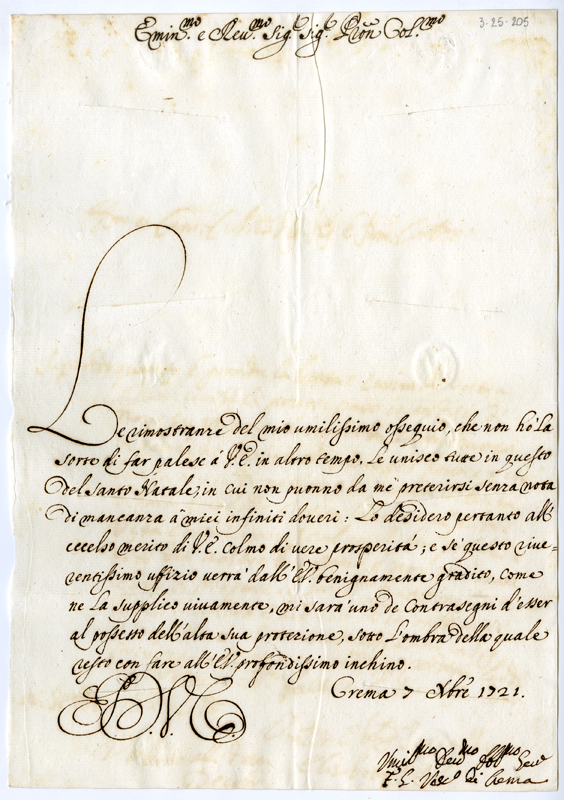 Emin.mo e Reu.mo Sig.r Sig.r Pron Col.mo
3-25-205
Le rimostranze del mio umilissimo ossequio, che non hò la
sorte di far palese à V.E. in altro tempo. Le unisco tutte in questo
del Santo Natale, in cui non puonno da mè preterirsi senza nota
di mancanza à miei infiniti doveri: Lo desidero pertanto all'
eccelso merito di V.E. colmo di vere prosperità; e sè questo rive=
rentissimo uffizio verrà dall'E.V. benignamente gradito, come
ne la supplico vivamente, mi sarà uno de contrasegni d'esser
al possesso dell'alta sua protezione, sotto l'ombra della quale
resto con fare all'E.V. profondissimo inchino.
Crema 7 Xbre 1721.
E.V.
Umil.mo Deu.mo Obl.mo Seru.
F. L. Vesc.o di Crema